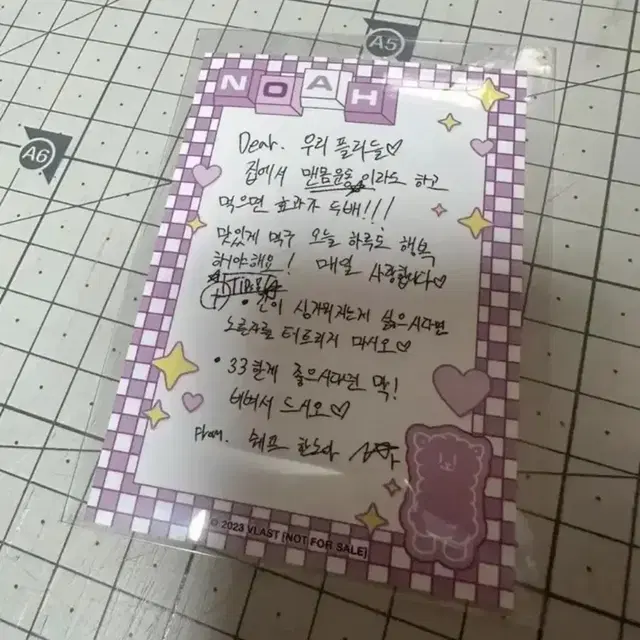 A5
A6
NOAH
Dear. 우리 플리들♡
집에서 맨몸운동이라도 하고
먹으면 효과가 두배!!!
맛있게 먹구 오늘 하루도 행복
해야해요! 매일 사랑합니다♡
• 간이 싱거워지는게 싫으시다면
노른자를 터트리지 마시오♡
• 꾸덕한게 좋으시다면 막!
비벼서 드시오♡
From. 쉐프 한노아
© 2023 VLAST [NOT FOR SALE]